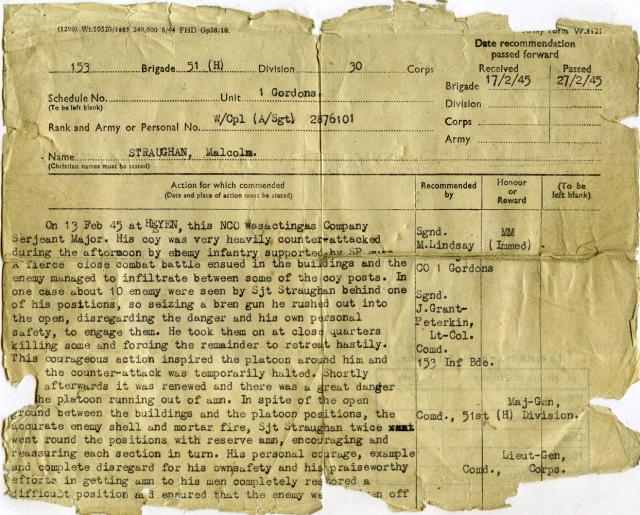 (1299) Wt.10320/1685 240,000 5/44 FHD Gp38/10.
Army Form W.3121
Date recommendation
passed forward
153 Brigade 51 (H) Division 30 Corps
Received Passed
Brigade 17/2/45 27/2/45
Schedule No. Unit 1 Gordons
(To be left blank)
Division
W/Cpl (A/Sgt) 2876101
Rank and Army or Personal No.
Corps
Army
Name STRAUGHAN, Malcolm.
(Christian names must be stated)
Action for which commended
(Date and place of action must be stated)
Recommended
by
Honour
or
Reward
(To be
left blank)
On 13 Feb 45 at HEYEN, this NCO Wasactingas Company
Serjeant Major. His coy was very heavily counter-attacked
during the afternoon by enemy infantry supported by SP
A fierce close combat battle ensued in the buildings and the
enemy managed to infiltrate between some of the coy posts. In
one case about 10 enemy were seen by Sjt Straughan behind one
of his positions, so seizing a bren gun he rushed out into
the open, disregarding the danger and his own personal
safety, to engage them. He took them on at close quarters
killing some and forcing the remainder to retreat hastily.
This courageous action inspired the platoon around him and
the counter-attack was temporarily halted. Shortly
afterwards it was renewed and there was a great danger
the platoon running out of amn. In spite of the open
ground between the buildings and the platoon positions, the
accurate enemy shell and mortar fire, Sjt Straughan twice
went round the positions with reserve amn, encouraging and
reassuring each section in turn. His personal courage, example
and complete disregard for his ownsafety and his praiseworthy
efforts in getting amn to his men completely restored a
difficult position and ensured that the enemy off
Sgnd.
M.Lindsay
MM
(Immed)
CO 1 Gordons
Sgnd.
J.Grant-
Peterkin,
Lt-Col.
Comd.
153 Inf Bde.
Maj-Gen,
Comd., 51st (H) Division.
Lieut-Gen,
Comd., Corps.